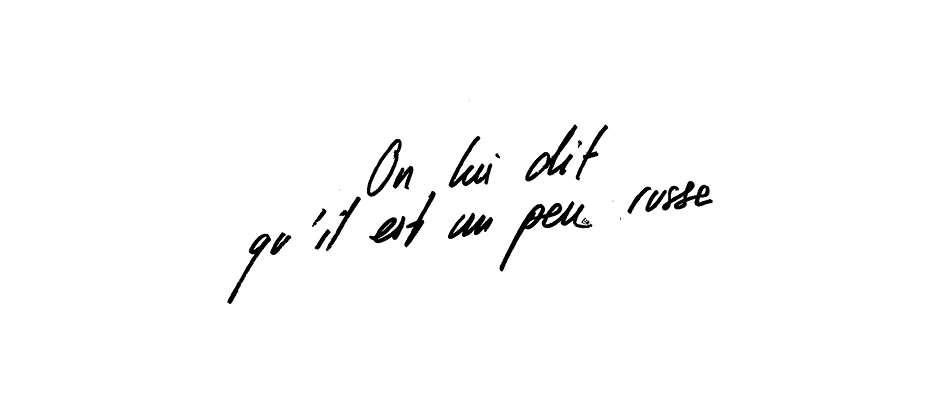 On lui dit
qu'il est un peu russe